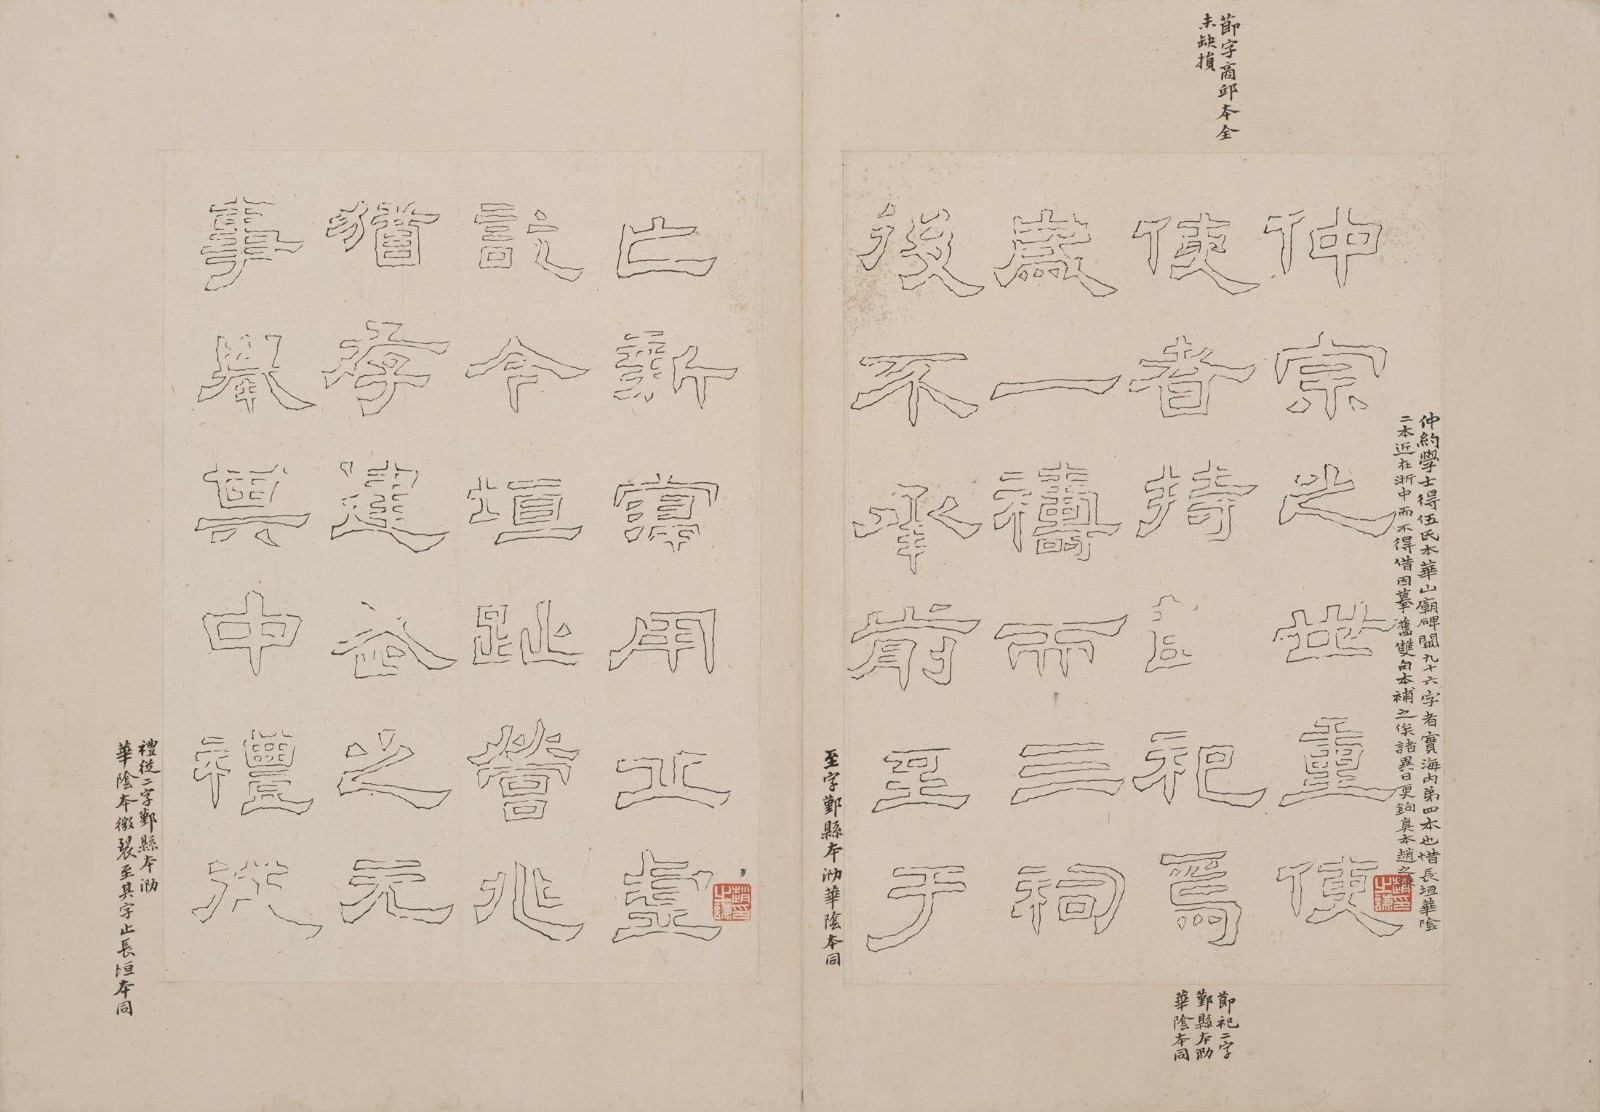 節字商邱本全
未缺損
仲約學士得伍氏本華山廟碑闕九十六字者實海内第四本也惜長垣華陰
二本近在浙中而不得借因摹舊雙句本補之俟諸異日更鉤真本趙之謙
趙印
之謙
仲宗之世重使
使者持節祀焉
歲一禱而三祠
後不承前至于
節祀二字
鄞縣本泐
華陰本同
至字鄞縣本泐華陰本同
亡新寖用丘虛
訖今垣趾營兆
猶存建武之元
事舉其中禮從
趙印
之謙
禮從二字鄞縣本泐
華陰本微裂至其字止長垣本同